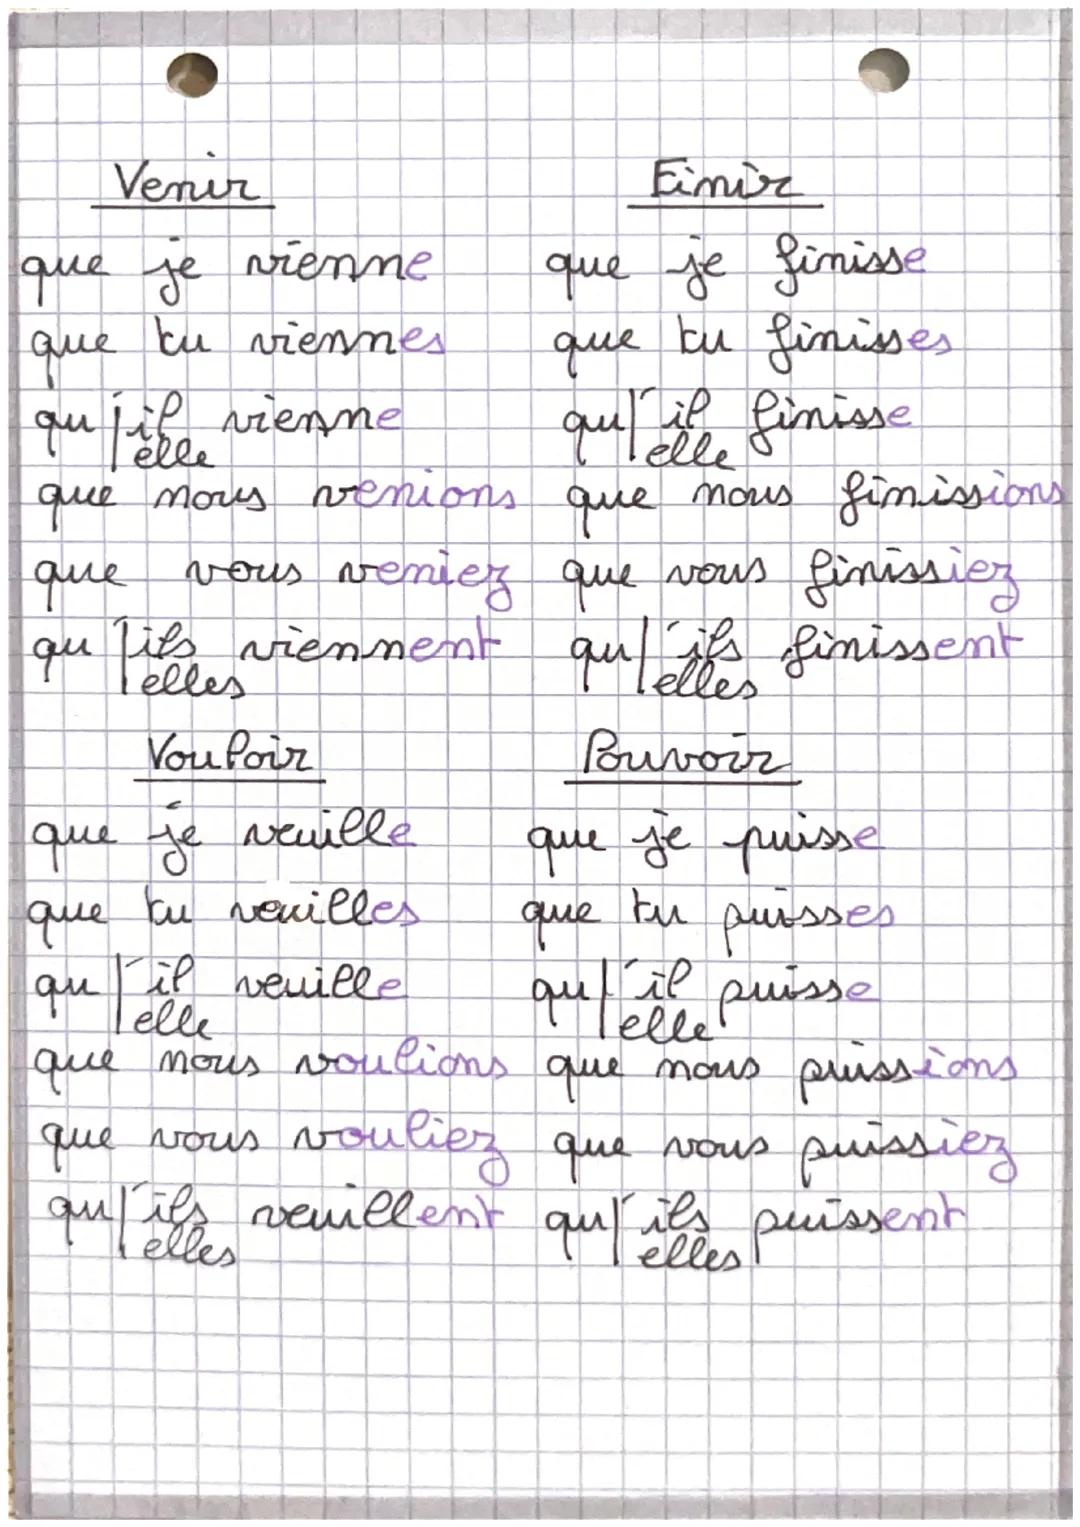 Venir
que je vienne
que tu viennes
qu'il vienne
elle
que nous venions
que vous veniez
qu'ils viennent
elles
Finir
que je finisse
que tu finisses
qu'il finisse
elle
que nous finissions
que vous finissiez
qu'ils finissent
elles
Vouloir
que je veuille
que tu veuilles
qu'il veuille
elle
que nous voulions
que vous vouliez
qu'ils veuillent
elles
Pouvoir
que je puisse
que tu puisses
qu'il puisse
elle
que nous puissions
que vous puissiez
qu'ils puissent
elles